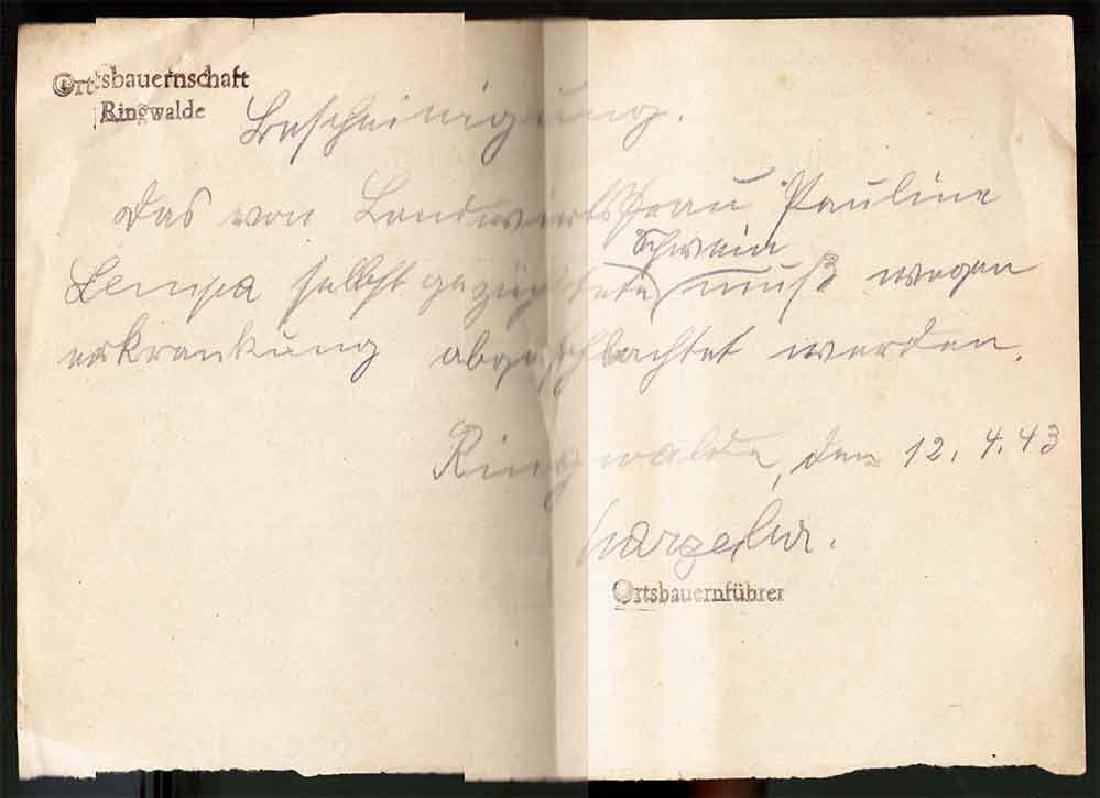 Ortsbauernschaft
Ringwalde
Bescheinigung.
Das von Landwirtsfrau Pauline
Schwein
Lempa selbst gezüchtete muß wegen
erkrankung abgeschlachtet werden.
Ringwalde, den 12. 4. 43
Ortsbauernführer